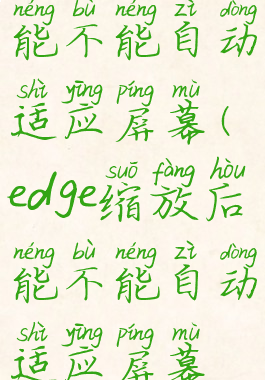 néng bù néng zì dòng
能不能自动
shì yīng píng mù
适应屏幕(
suō fàng hòu
edge缩放后
néng bù néng zì dòng
能不能自动
shì yīng píng mù
适应屏幕